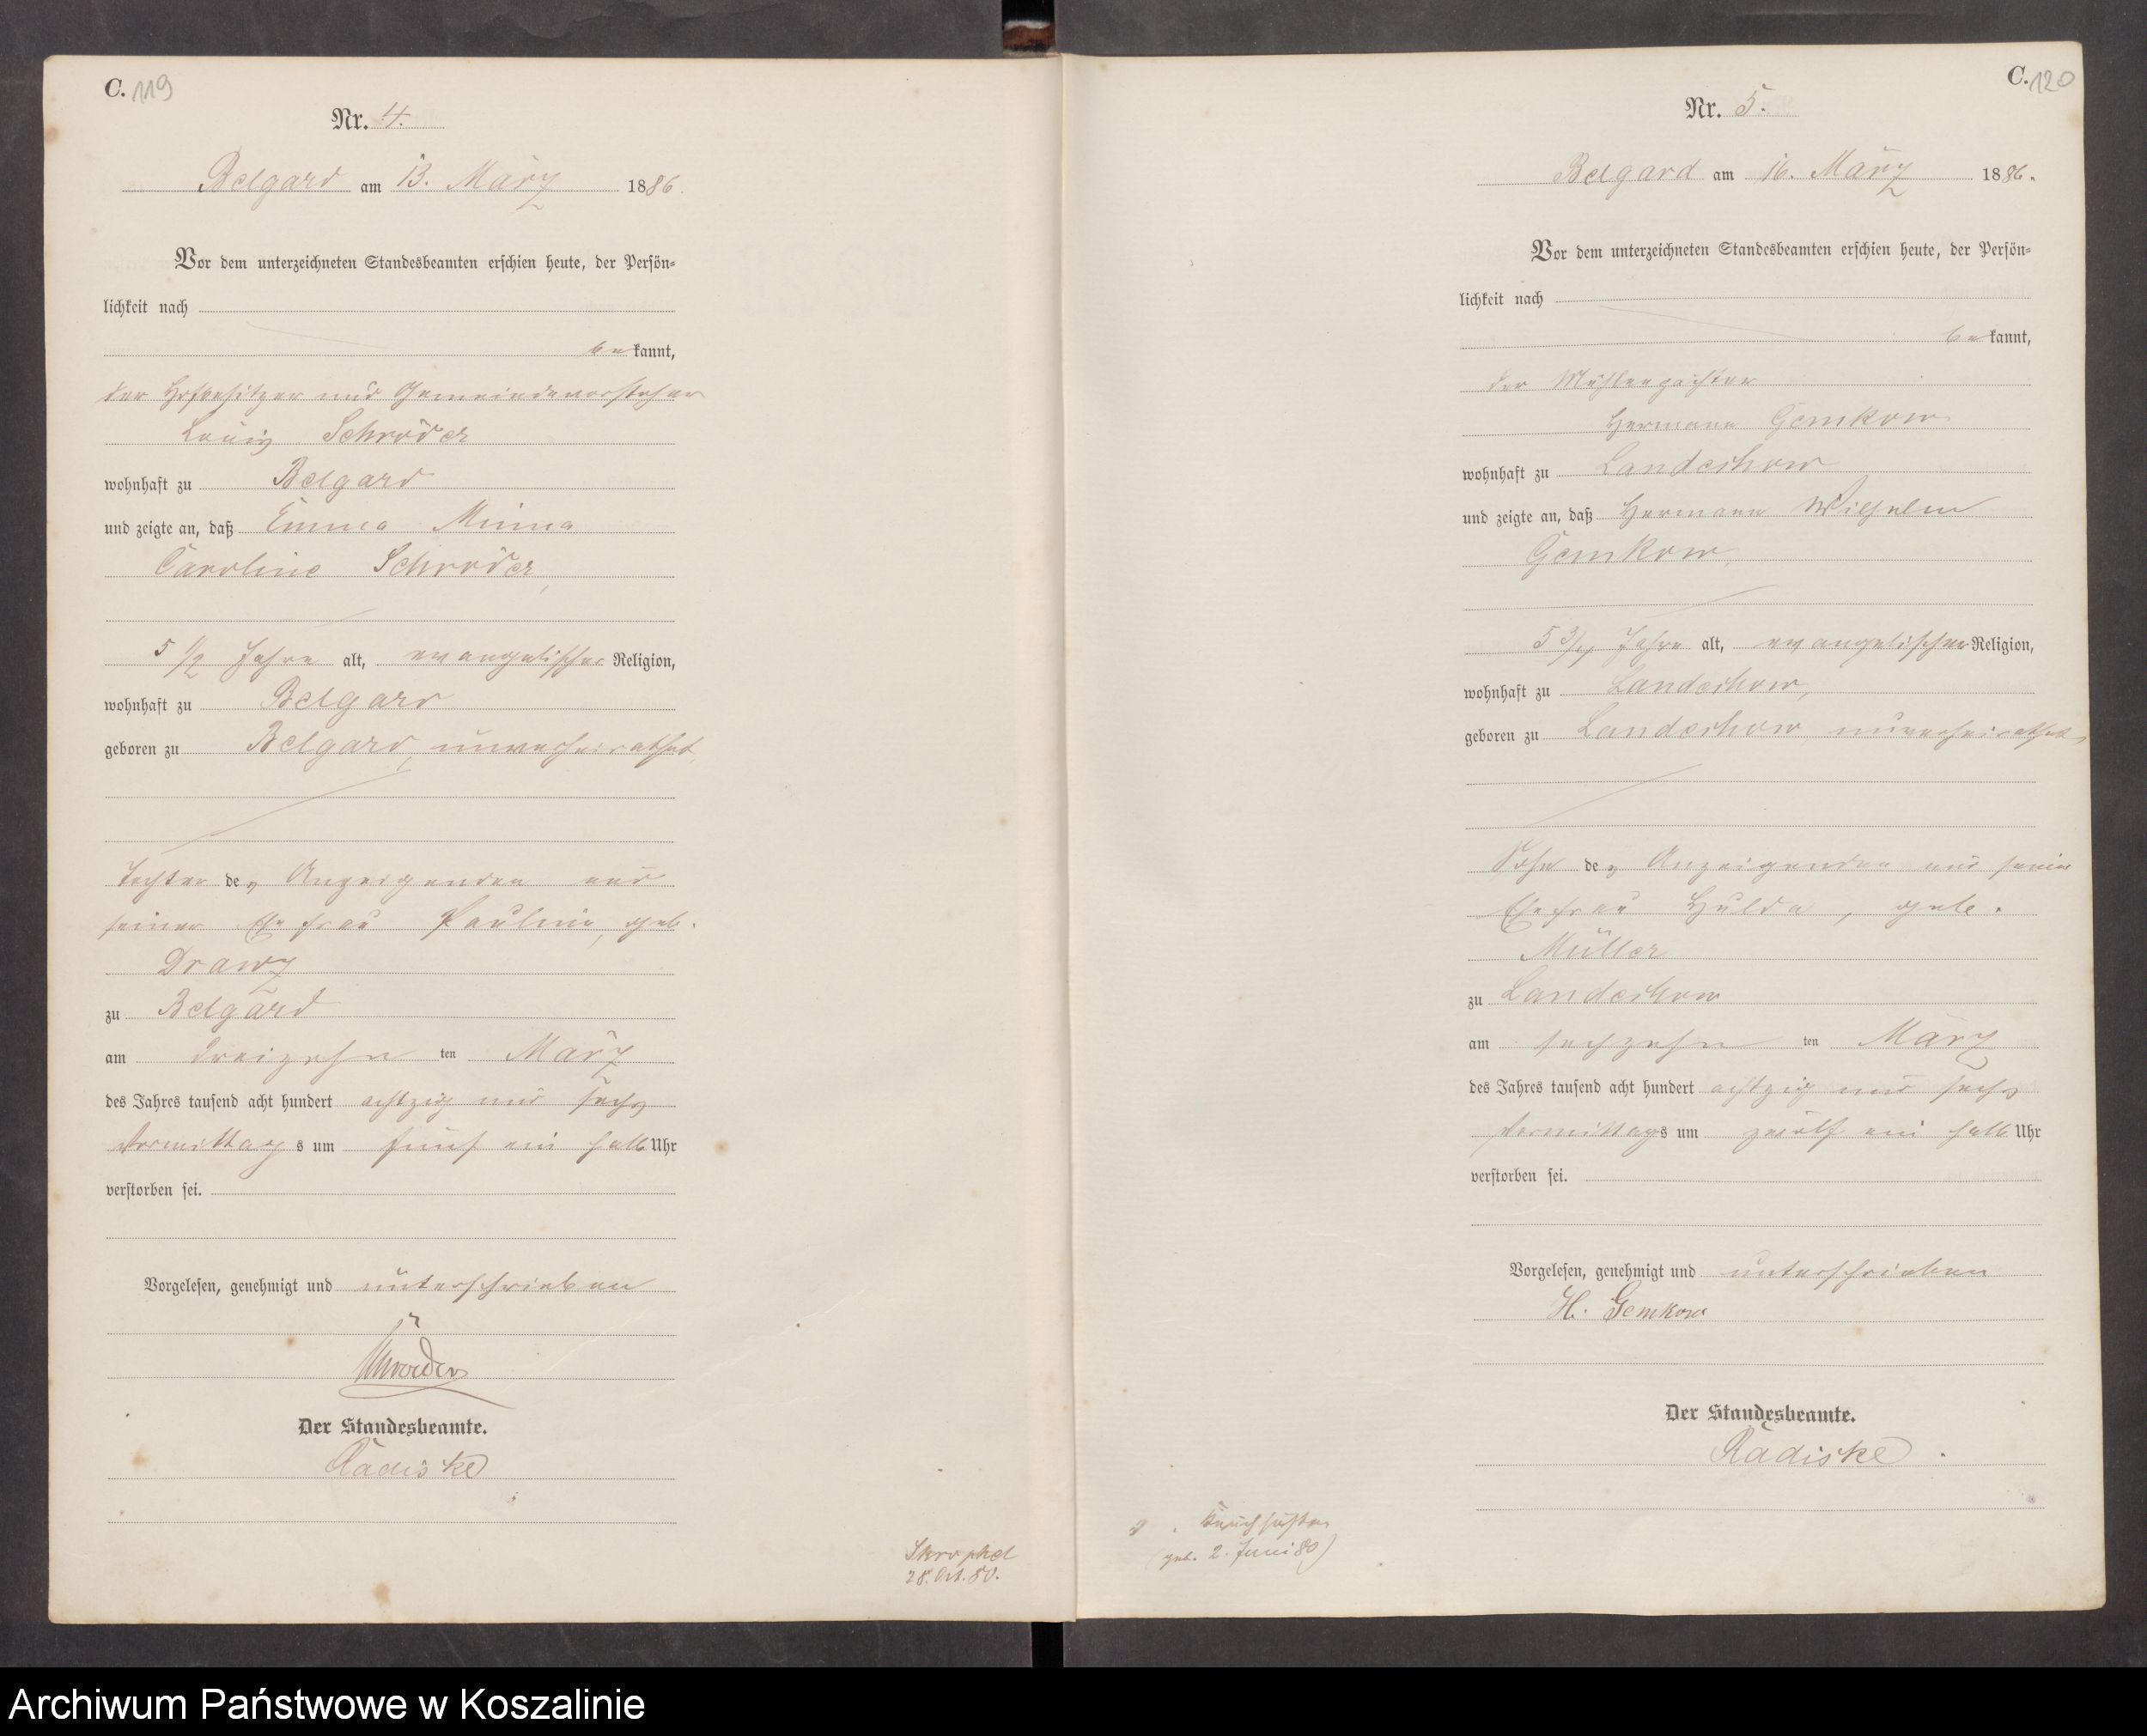 C. 119
Nr. 4.
Belgard am 13. März 1886.
Vor dem unterzeichneten Standesbeamten erschien heute, der Persön-
lichkeit nach
be kannt,
der Hofbesitzer und Gemeindevorsteher
Louis Schröder
wohnhaft zu Belgard
und zeigte an, daß Emma Minna
Caroline Schröder,
5 1/2 Jahre alt, evangelischer Religion,
wohnhaft zu Belgard
geboren zu Belgard, unverheirathet,
Tochter des Anzeigenden und
seiner Ehefrau Pauline, geb.
Drawz
zu Belgard
am dreizehn ten März
des Jahres tausend acht hundert achtzig und sechs
Vormittags um fünf ein halb Uhr
verstorben sei.
Vorgelesen, genehmigt und unterschrieben
Schroeder
Der Standesbeamte.
Radiske
28. Oct. 80.
C. 120
Nr. 5.
Belgard am 16. März 1886.
Vor dem unterzeichneten Standesbeamten erschien heute, der Persön-
lichkeit nach
be kannt,
der Mühlenpächter
Hermann Gemkow
wohnhaft zu Landechow
und zeigte an, daß Hermann Wilhelm
Gemkow,
5 3/4 Jahre alt, evangelischer Religion,
wohnhaft zu Landechow,
geboren zu Landechow, unverheirathet,
Sohn des Anzeigenden und seiner
Ehefrau Hulda, geb.
Müller
zu Landechow
am sechzehn ten März
des Jahres tausend acht hundert achtzig und sechs
Vormittags um zwölf ein halb Uhr
verstorben sei.
Vorgelesen, genehmigt und unterschrieben
H. Gemkow
Der Standesbeamte.
Radiske.
Keuchhusten
(geb. 2. Juni 80)
Archiwum Państwowe w Koszalinie